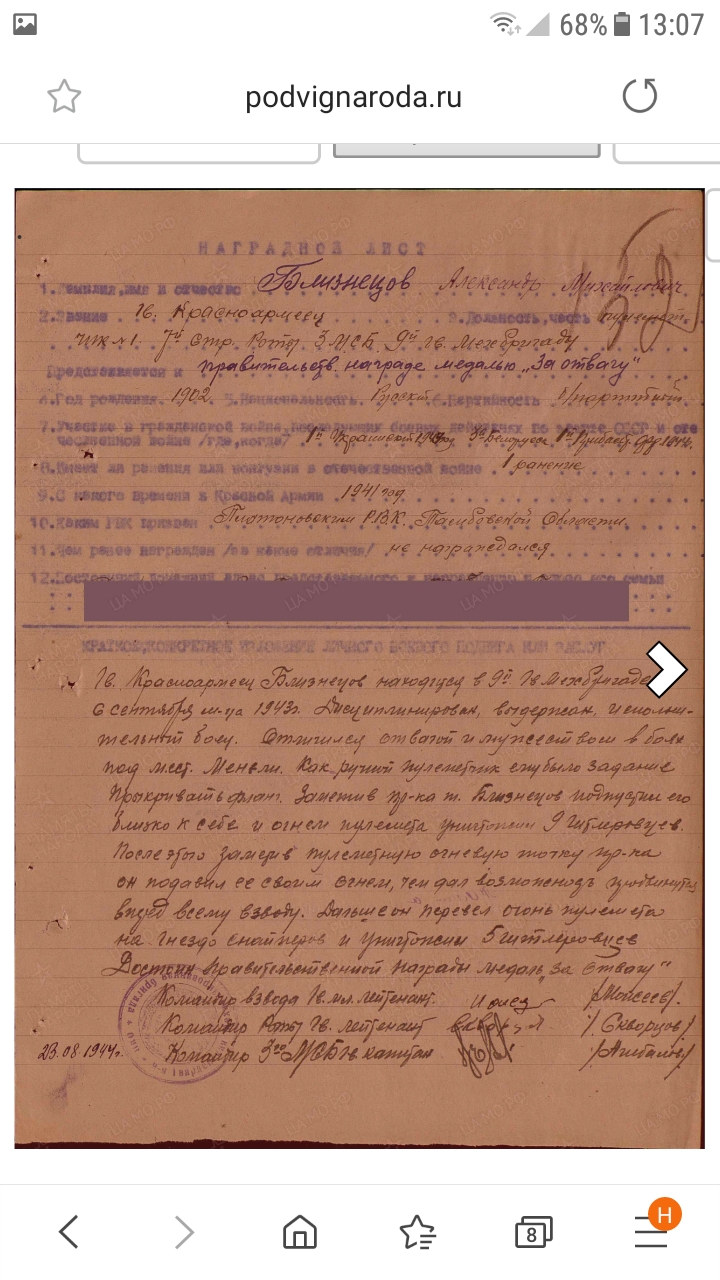 68% 13:07
podvignaroda.ru
НАГРАДНОЙ ЛИСТ
1. Фамилия, имя и отчество Близнецов Александр Михайлович
2. Звание Гв. Красноармеец 3. Должность, часть
7й Стр. Роты 3 МСБ 9й Гв. Мехбригады
Представляется к правительств. награде медалью "За отвагу"
4. Год рождения 1902 5. Национальность Русский 6. Партийность б/партийный
7. Участие в гражданской войне, последующих боевых действиях по защите СССР и оте
чественной войне /где, когда/ 1й Украинский
8. Имеет ли ранения или контузии в отечественной войне 1 ранение
9. С какого времени в Красной Армии 1941 год
10. Каким РВК призван Платоновским Р.В.К. Тамбовской Области
11. Чем ранее награжден /за какие отличия/ не награждался
12. Постоянный домашний адрес представляемого к награждению и адрес его семьи
КРАТКОЕ, КОНКРЕТНОЕ ИЗЛОЖЕНИЕ ЛИЧНОГО БОЕВОГО ПОДВИГА ИЛИ ЗАСЛУГ
Гв. Красноармеец Близнецов находится в 9й Гв Мехбригаде
с сентября м-ца 1943г. Дисциплинирован, выдержан, исполни-
тельный боец. Отличился отвагой и мужеством в боях
под мест. Менгли. Как ручной пулеметчик ему было задание
Прикривать фланг. Заметив пр-ка т. Близнецов подпустил его
близко к себе и огнем пулемета уничтожил 9 гитлеровцев.
После этого заметив пулеметную огневую точку пр-ка
он подавил ее своим огнем, чем дал возможность продвинутся
вперед всему взводу. Дальше он перевел огонь пулемета
на гнездо снайперов и уничтожил 5 гитлеровцев
Достоин Правительственной Награды медаль "за Отвагу"
Командир взвода Гв. мл. лейтенант. /Моисеев/.
Командир Роты Гв. лейтенант /Скворцов/
23.08.1944г. Командир 3го МСБ Гв капитан
8
Н